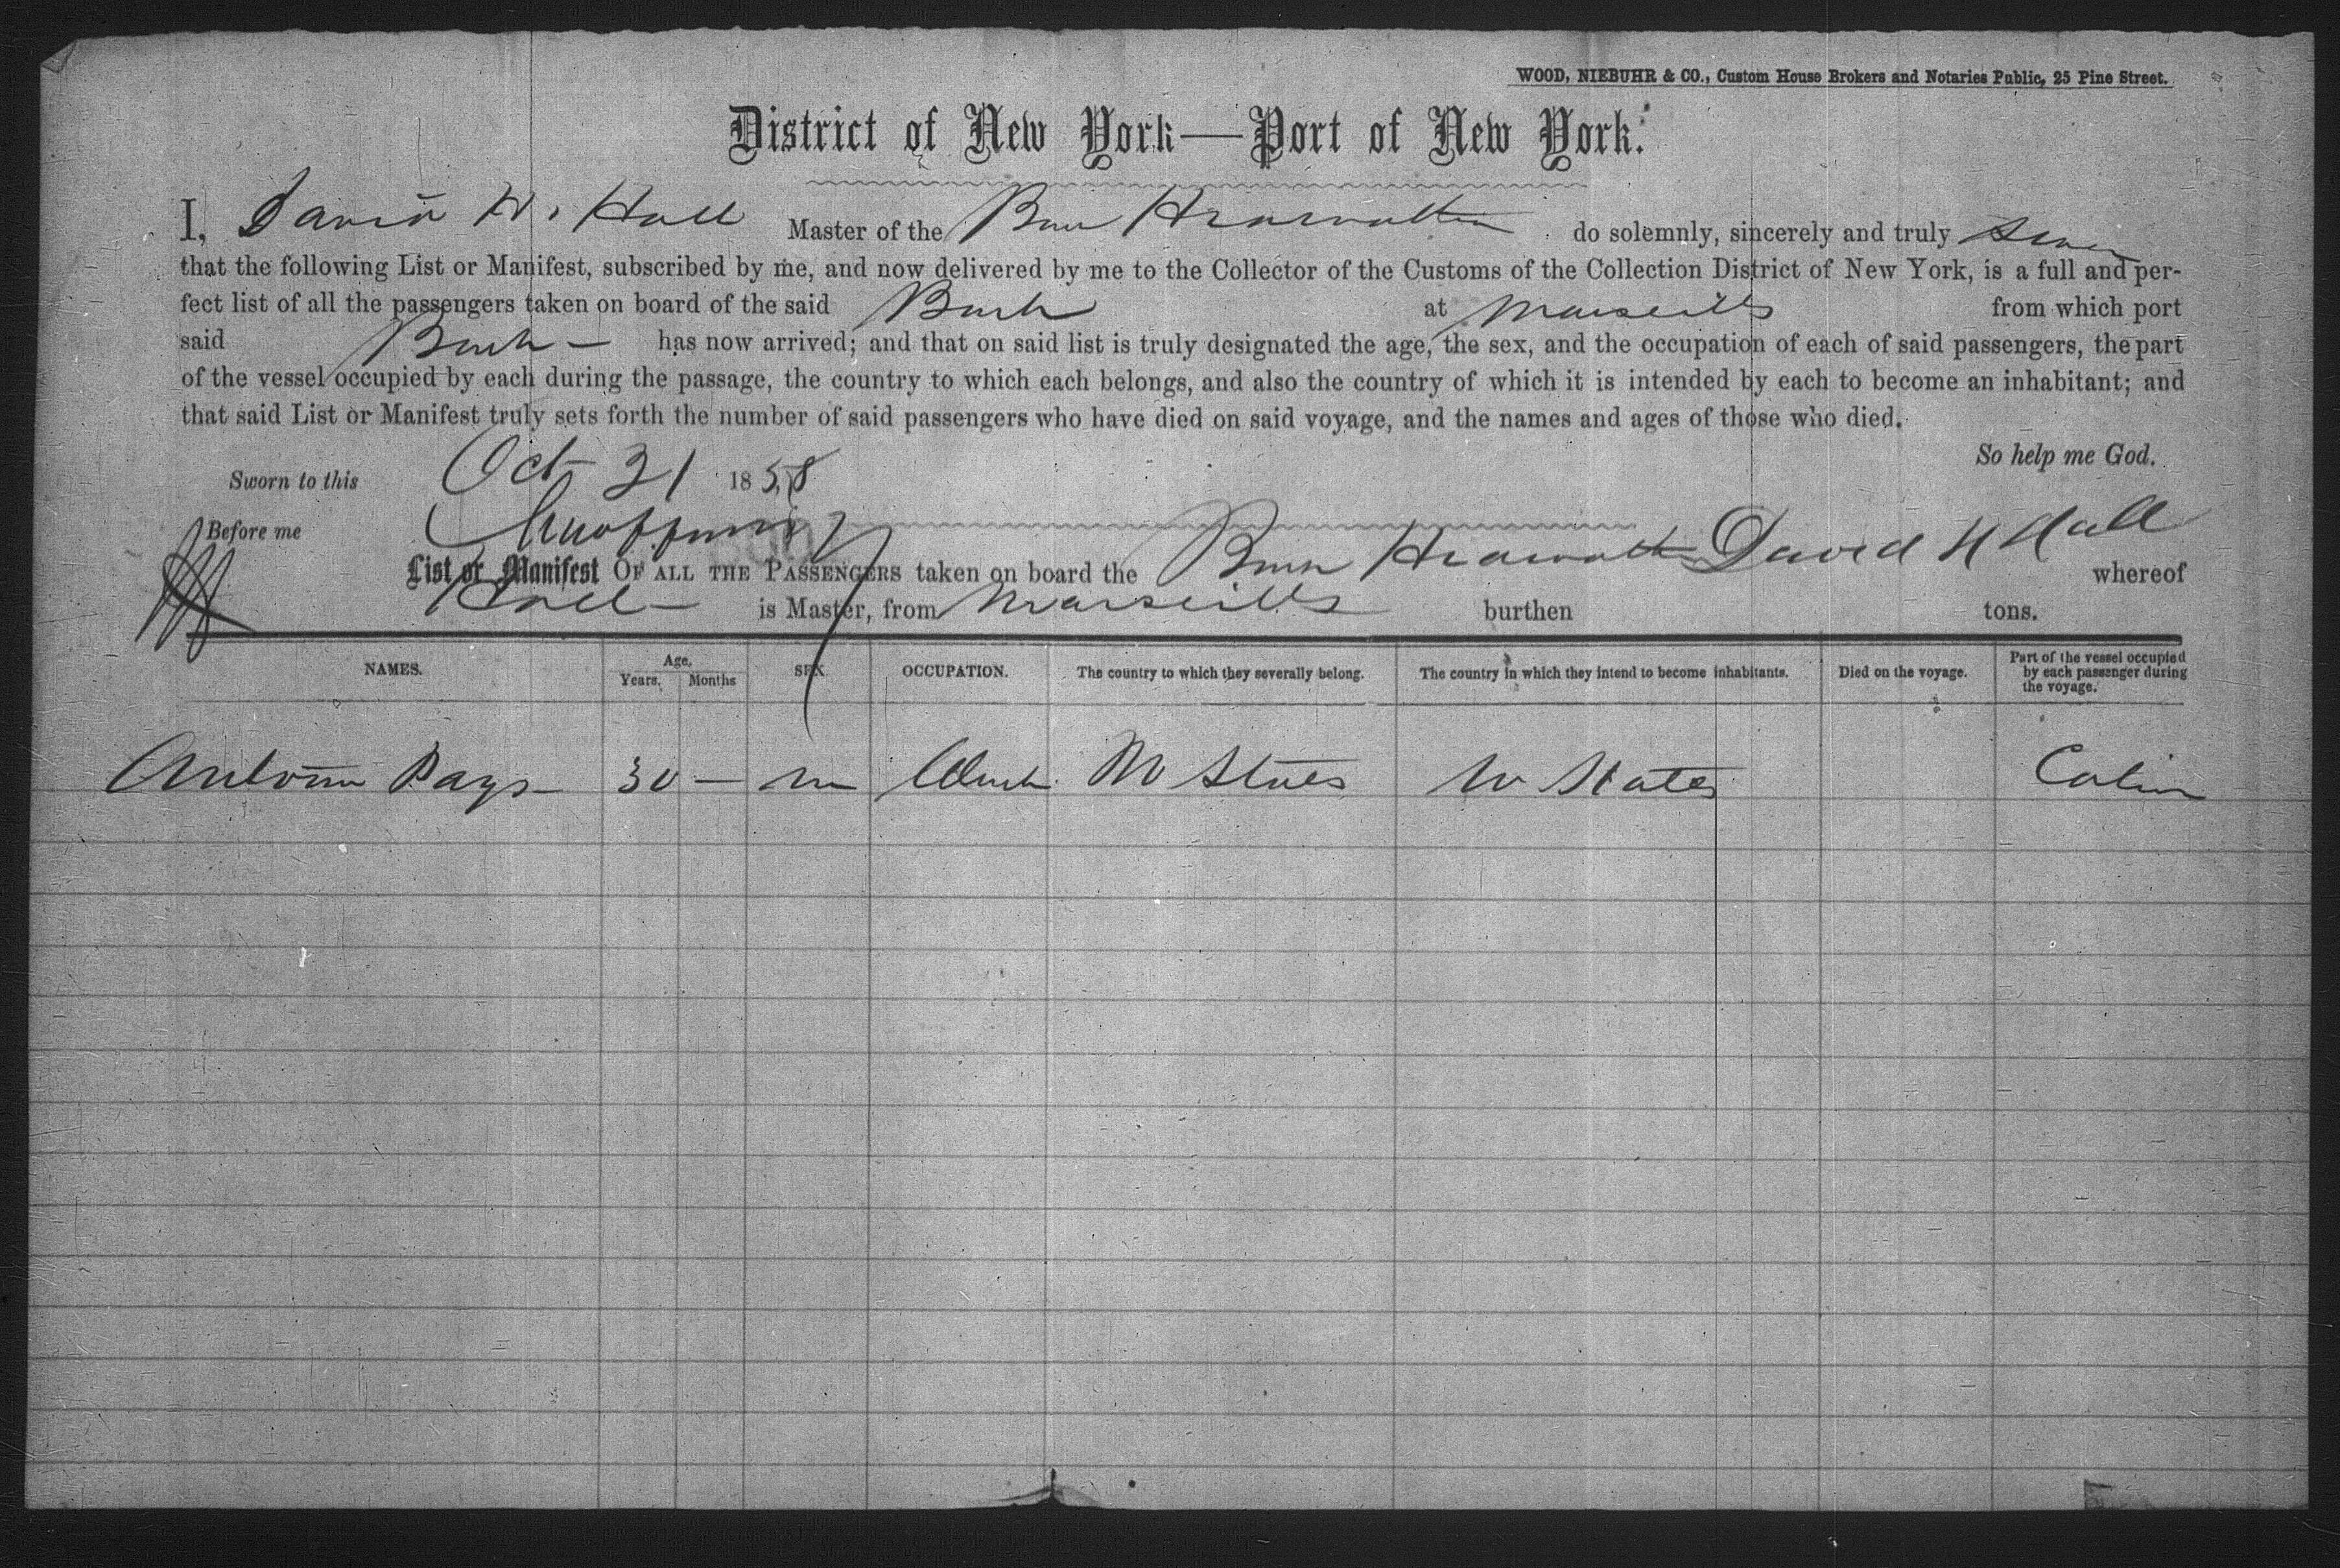 WOOD, NIEBUHR & CO., Custom House Brokers and Notaries Public, 25 Pine Street.
District of New York—Port of New York.
I, David H. Hall Master of the do solemnly, sincerely and truly swear
that the following List or Manifest, subscribed by me, and now delivered by me to the Collector of the Customs of the Collection District of New York, is a full and per-
fect list of all the passengers taken on board of the said Bark at Marseills from which port
said Bark — has now arrived; and that on said list is truly designated the age, the sex, and the occupation of each of said passengers, the part
of the vessel occupied by each during the passage, the country to which each belongs, and also the country of which it is intended by each to become an inhabitant; and
that said List or Manifest truly sets forth the number of said passengers who have died on said voyage, and the names and ages of those who died.
So help me God.
Sworn to this Oct 21 1858
Before me David H Hall
List or Manifest OF ALL THE PASSENGERS taken on board the whereof
Hall — is Master, from Marseills burthen tons.
NAMES. Age, Years, Months SEX OCCUPATION. The country to which they severally belong. The country in which they intend to become inhabitants. Died on the voyage. Part of the vessel occupied by each passenger during the voyage.
30 — m States States Cabin